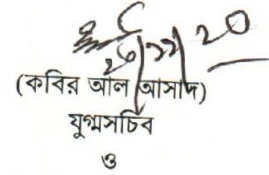 ২৩/১১/২০
(কবির আল আসাদ)
যুগ্মসচিব
ও